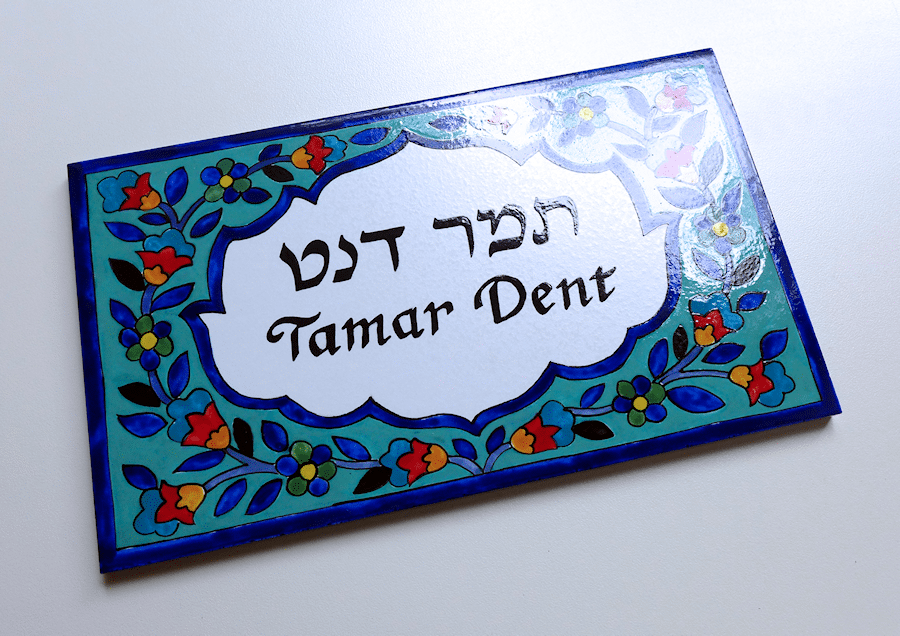 תמר דנט
Tamar Dent